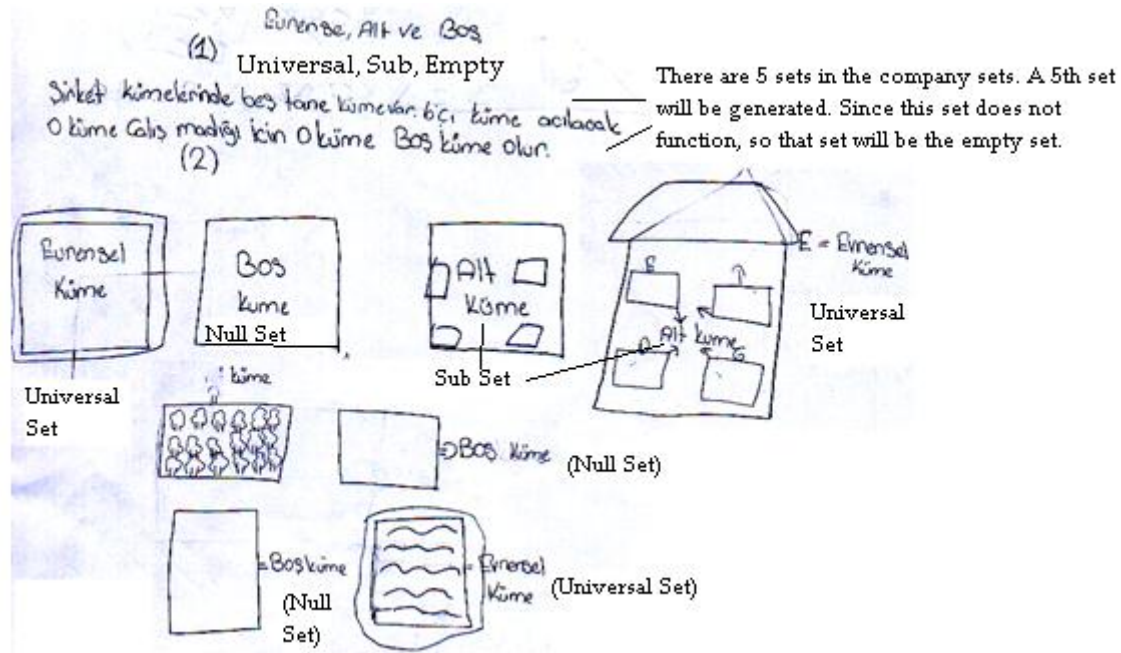 Evrense, Alt ve Boş
(1)
Universal, Sub, Empty
Şirket kümelerinde beş tane küme var. küme açılacak
O küme Çalış madığı için O küme Boş küme olur.
(2)
There are 5 sets in the company sets. A 5th set
will be generated. Since this set does not
function, so that set will be the empty set.
Evrensel
Küme
Boş
kume
Null Set
Alt
Küme
Sub Set
E = Evrensel
Küme
Universal
Set
Alt kume
Universal
Set
küme
=Boş Küme (Null Set)
=Boşküme
(Null
Set)
= Evrensel
Küme
(Universal Set)